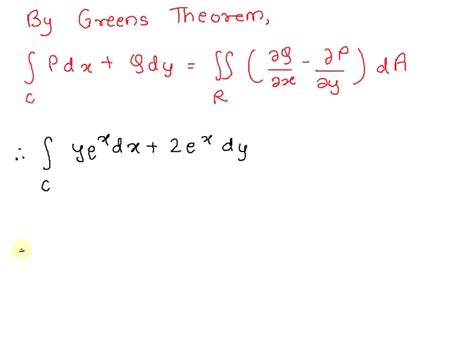 By Greens Theorem,
∫_C Pdx + Qdy = ∬_R (∂Q/∂x - ∂P/∂y) dA
∴ ∫_C ye^x dx + 2e^x dy